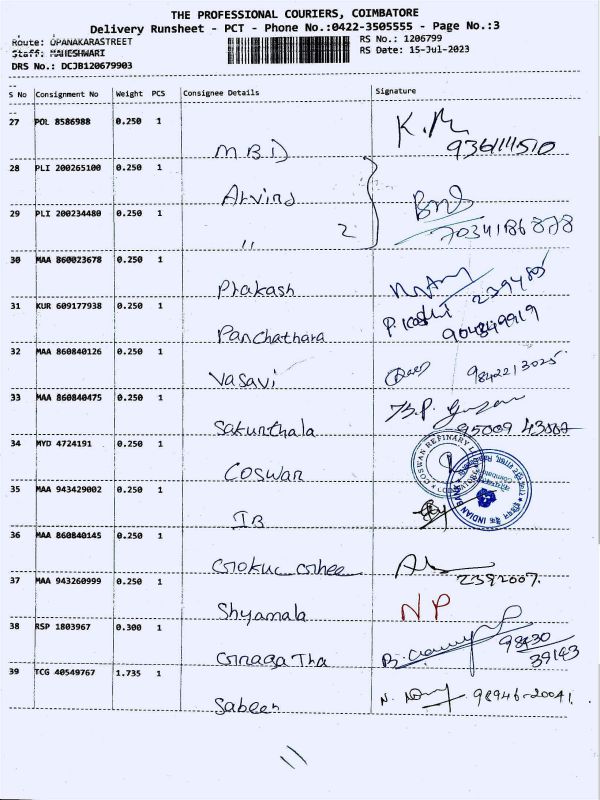 THE PROFESSIONAL COURIERS, COIMBATORE
Delivery Runsheet - PCT - Phone No.:0422-3505555 - Page No.:3
Route: OPANAKARASTREET
RS No.: 1206799
Staff: MAHESHWARI
RS Date: 15-Jul-2023
DRS No.: DCJB120679903
S No Consignment No Weight PCS Consignee Details Signature
27 POL 8586988 0.250 1
K.M
MBD 9361111510
28 PLI 200265100 0.250 1
Arvind
29 PLI 200234480 0.250 1
7034186878
" 2
30 MAA 860023678 0.250 1
Prakash 2394785
31 KUR 609177938 0.250 1
Panchathara 904849919
32 MAA 860840126 0.250 1
Vasavi 9842213025
33 MAA 860840475 0.250 1
Sakunthala 95009 43007
34 MYD 4724191 0.250 1
COSWAN REFINARY
COSWAN
35 MAA 943429002 0.250 1
INDIAN BANK
IB
36 MAA 860840145 0.250 1
Gokul Ghee 2392007.
37 MAA 943260999 0.250 1
Shyamala NP
38 RSP 1803967 0.300 1
98430
39143
Ginaga Tha
39 TCG 40549767 1.735 1
98946-20041.
Sabeen